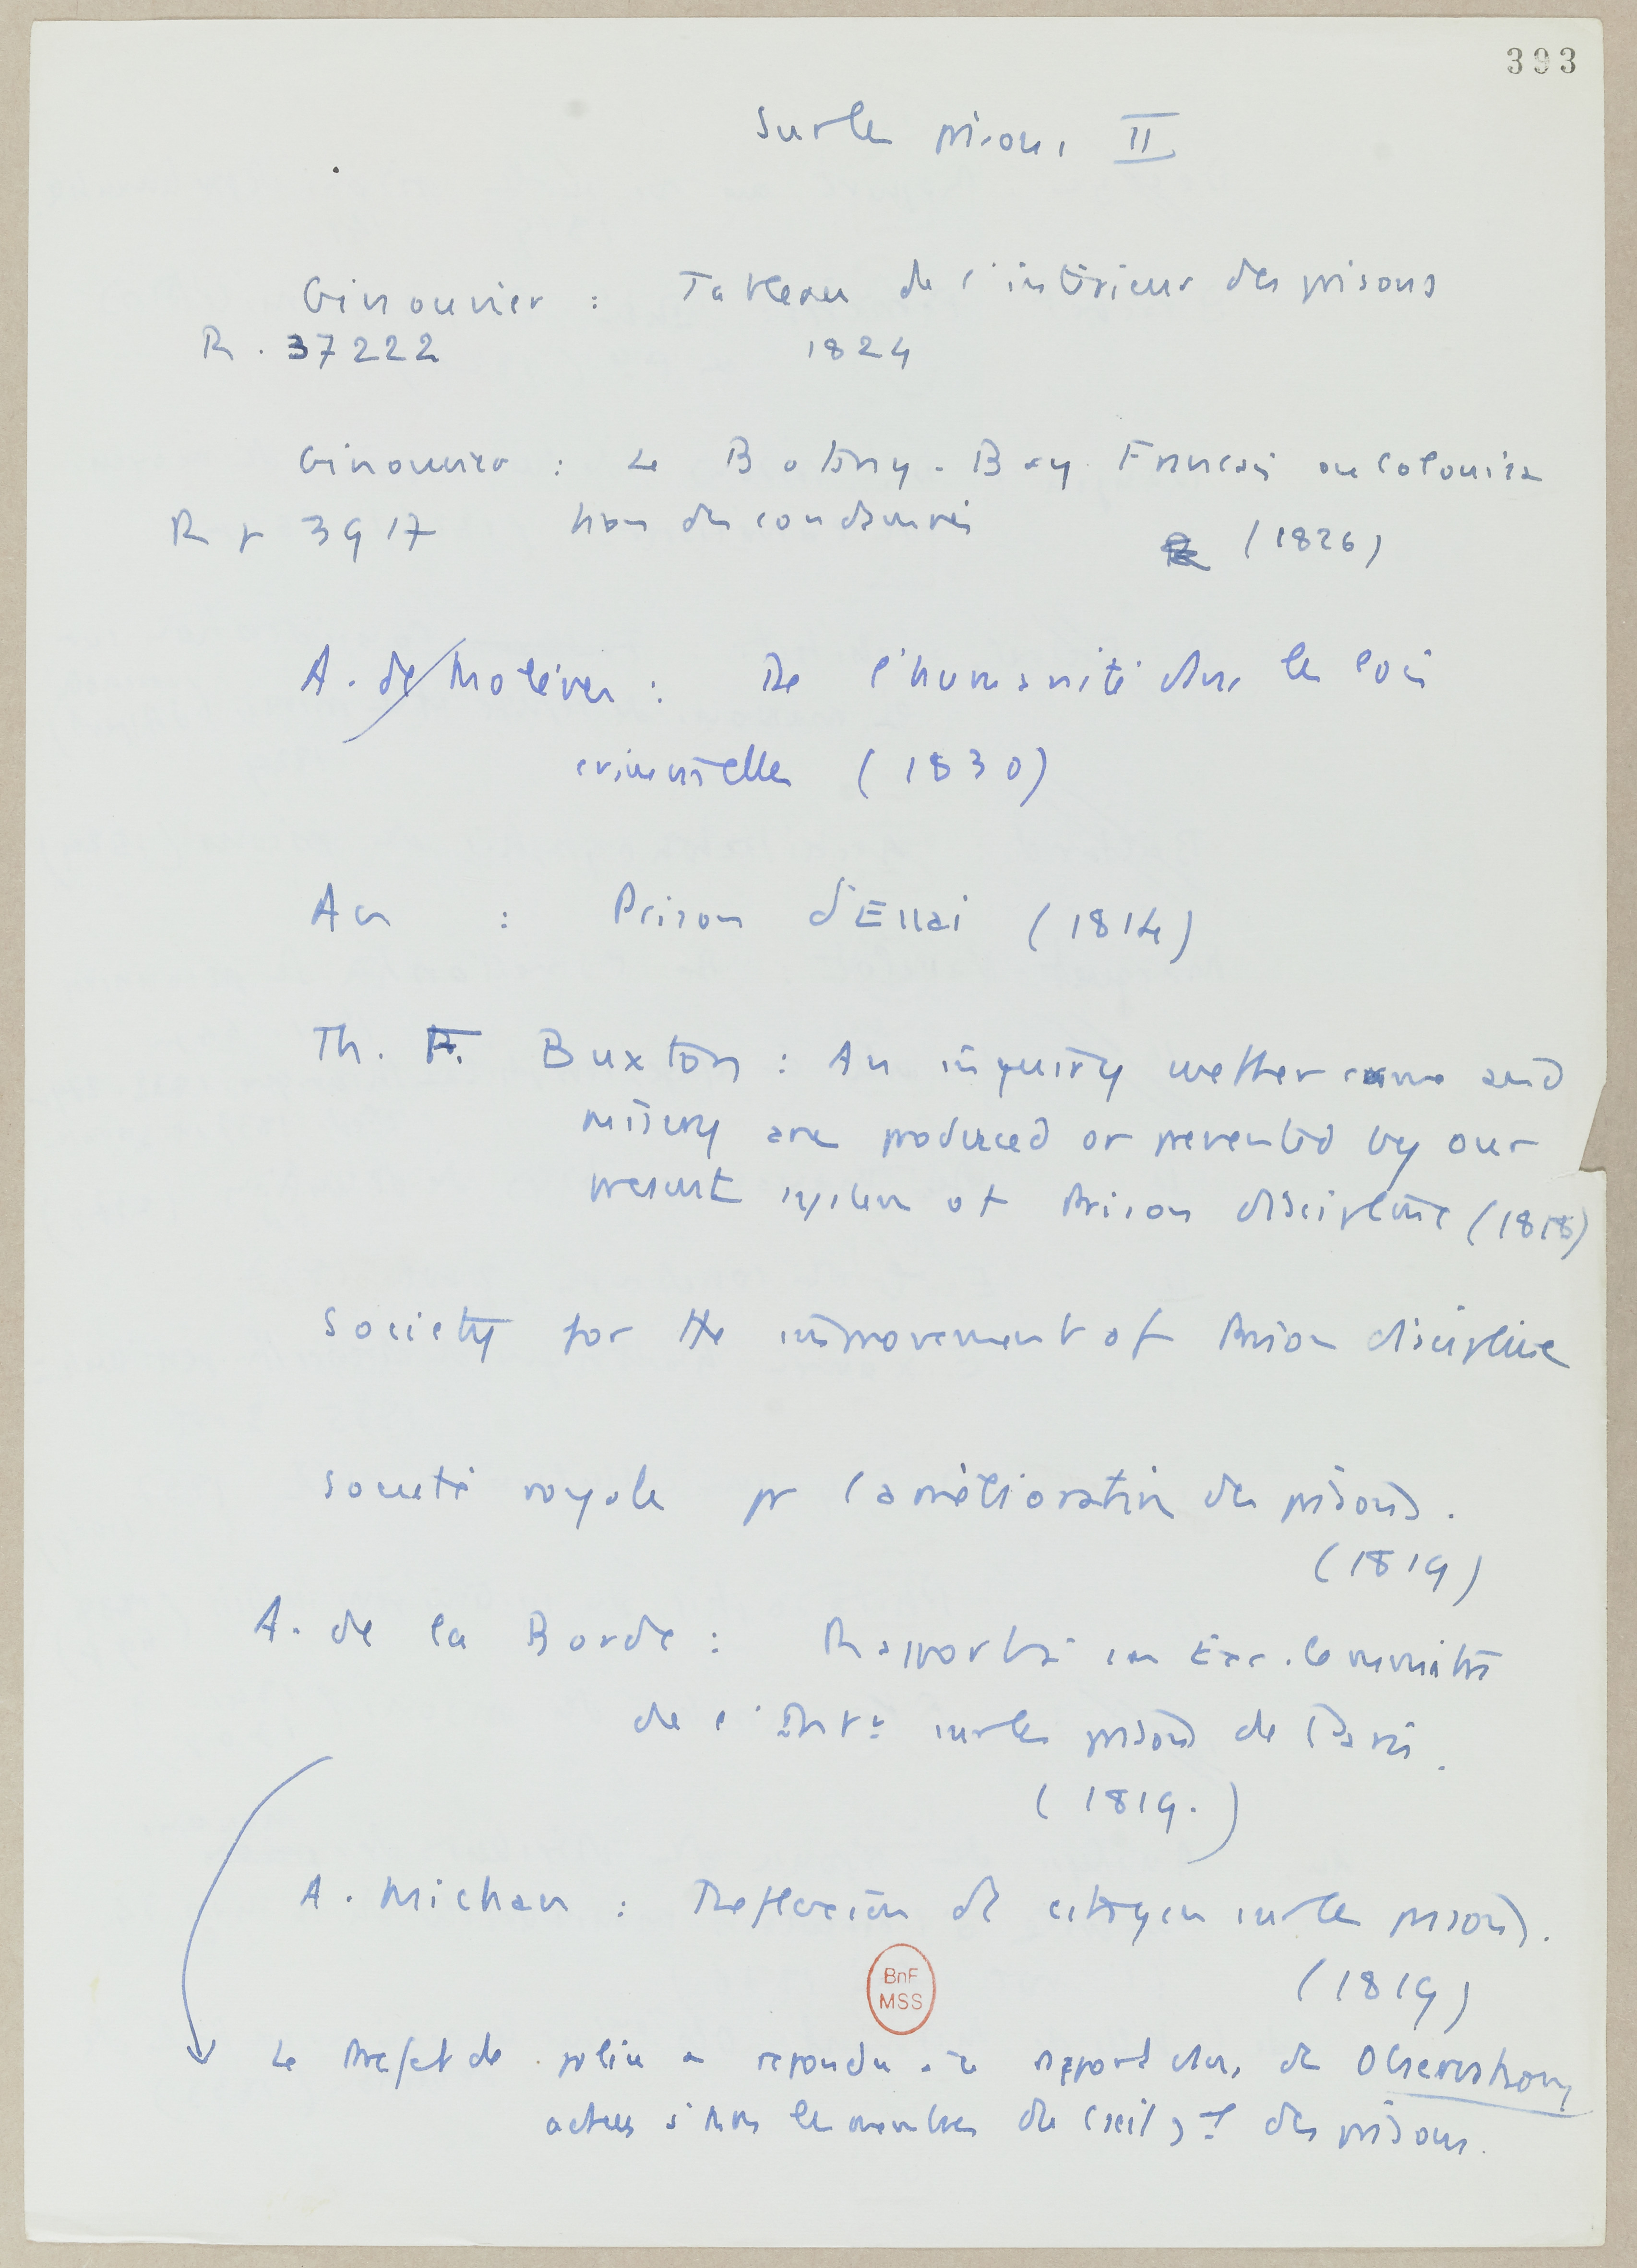 393
Sur les prisons II
Ginouvier : Tableau de l'intérieur des prisons
R. 37222 1824
Ginouvier : Le Botany-Bay Français ou colonisa
R p 3917 tion des condamnés (1826)
A. de Molènes : De l'humanité dans les lois
criminelles (1830)
An : Prison d'Essai (1814)
Th. F. Buxton : An inquiry wether crime and
misery are produced or prevented by our
present system of Prison discipline (1818)
Society for the improvement of Prison discipline
Société royale pr l'amélioration des prisons.
(1819)
A. de la Borde : Rapport à son Exc. le ministre
de l'Intr sur les prisons de Paris.
(1819.)
A. Michau : Reflexion de citoyen sur les prisons.
(1819)
BnF
MSS
Le Prefet de police a repondu à ce rapport dans des Observations
à MM les membres du Cseil gl des prisons.